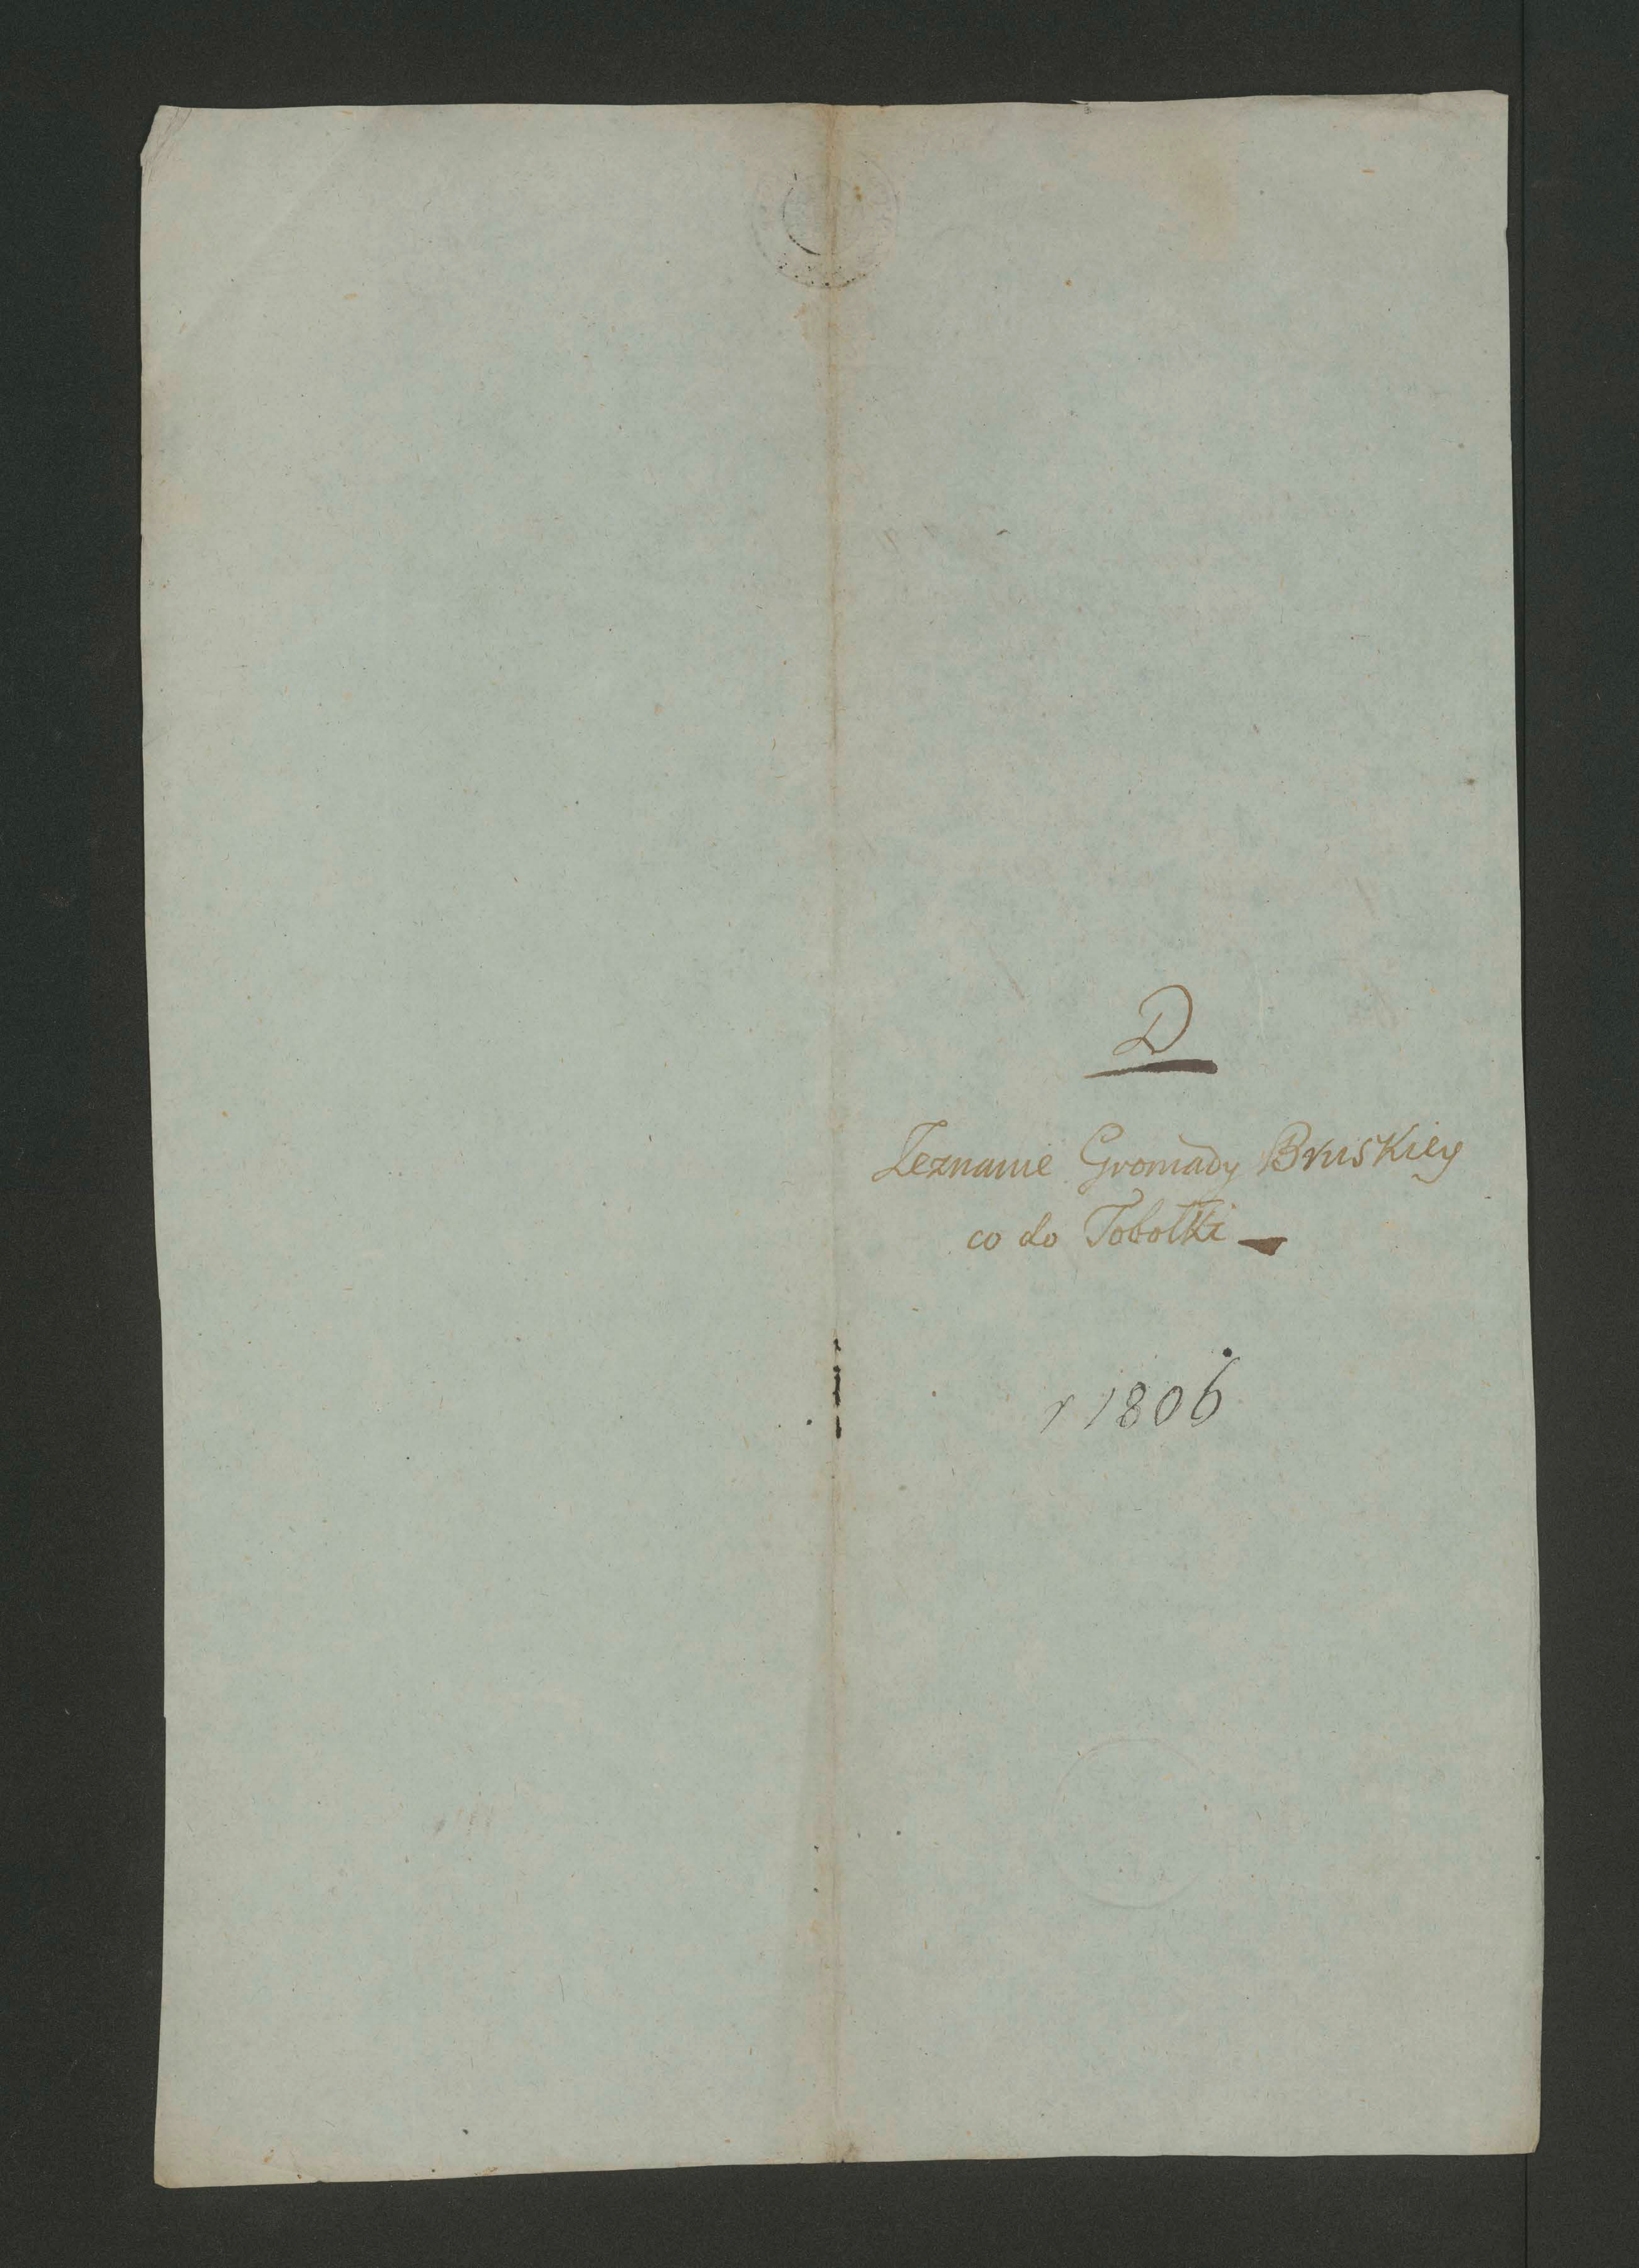 D
Zeznanie Gromady Bruskiey
co do Tobołki
r 1806